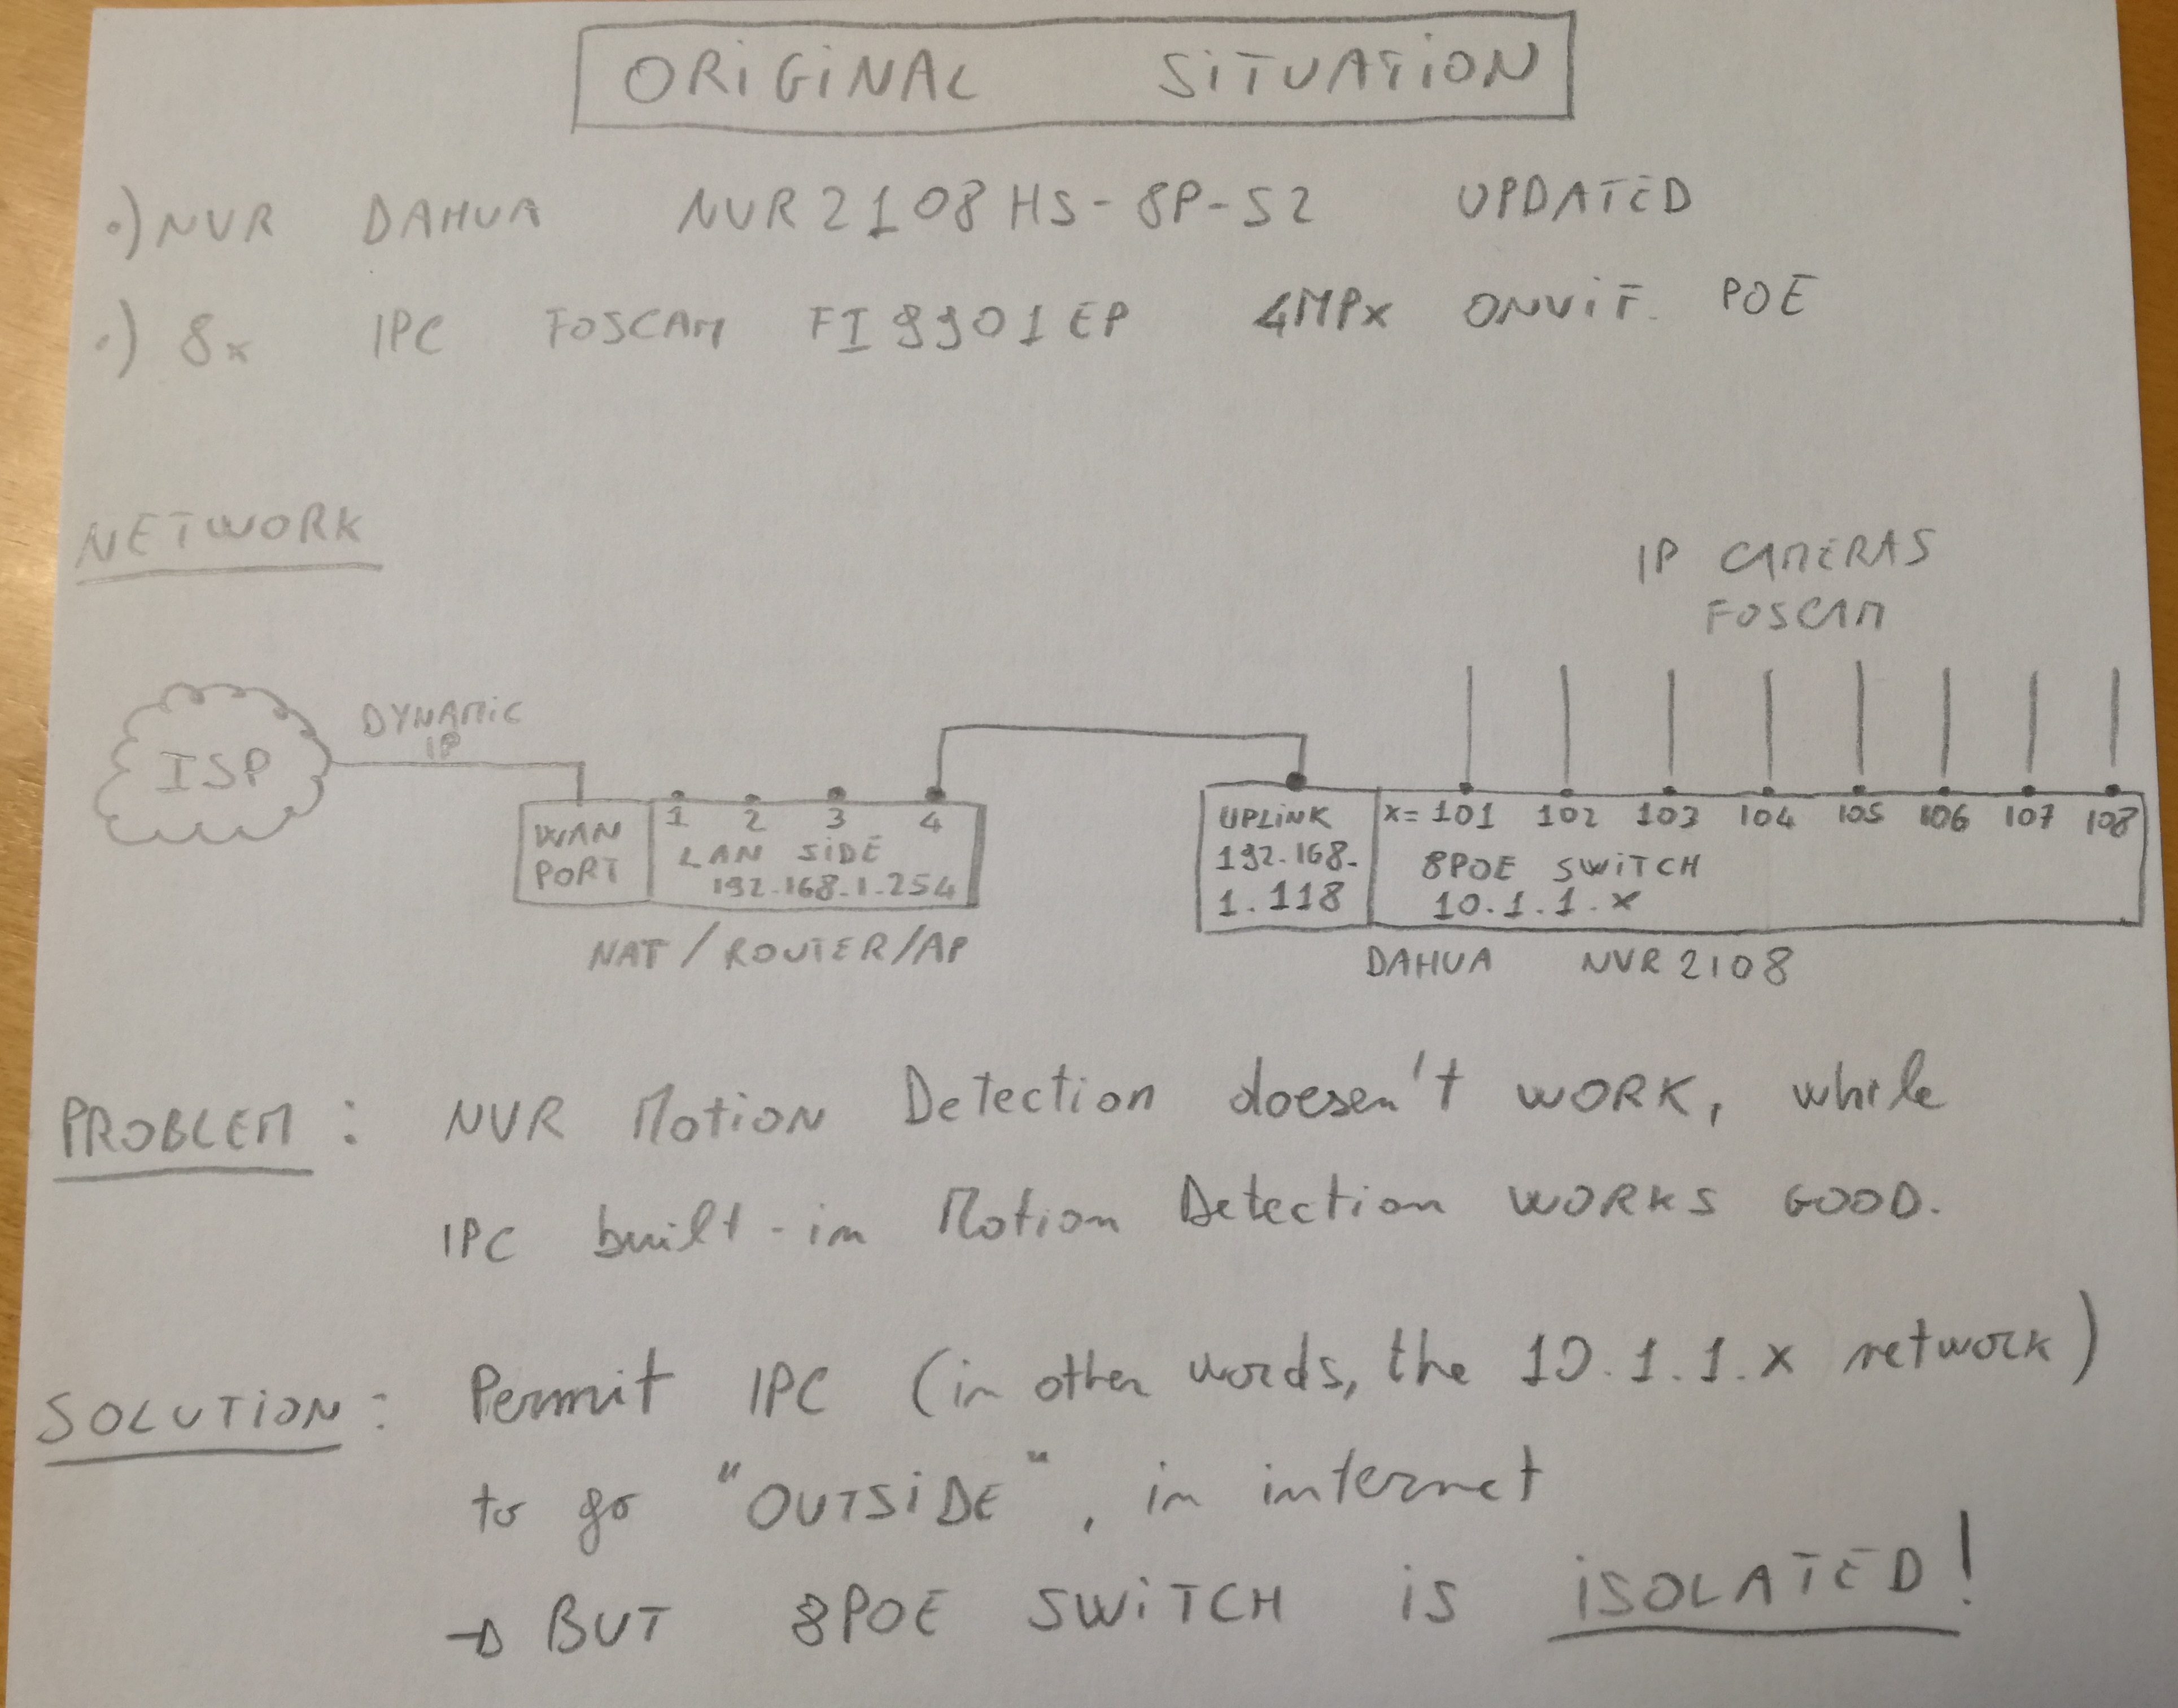 ORiGiNAL SiTUATiON
•) NVR DAHUA NVR2108HS-8P-S2 UPDATED
•) 8x IPC FOSCAM FI9901EP 4MPx ONViF. POE
NETWORK
IP CAMERAS
FOSCAM
DYNAMiC
IP
ISP
WAN
PORT
1 2 3 4
LAN SiDE
192.168.1.254
NAT / ROUTER/AP
UPLiNK
192.168.
1.118
x= 101 102 103 104 105 106 107 108
8POE SWiTCH
10.1.1.x
DAHUA NVR 2108
PROBLEM: NVR Motion Detection doesen't WORK, while
IPC built-in Motion Detection WORKS GOOD.
SOLUTiON: Permit IPC (in other words, the 10.1.1.x network)
to go "OUTSiDE", in internet
→ BUT 8POE SWiTCH iS iSOLATED!